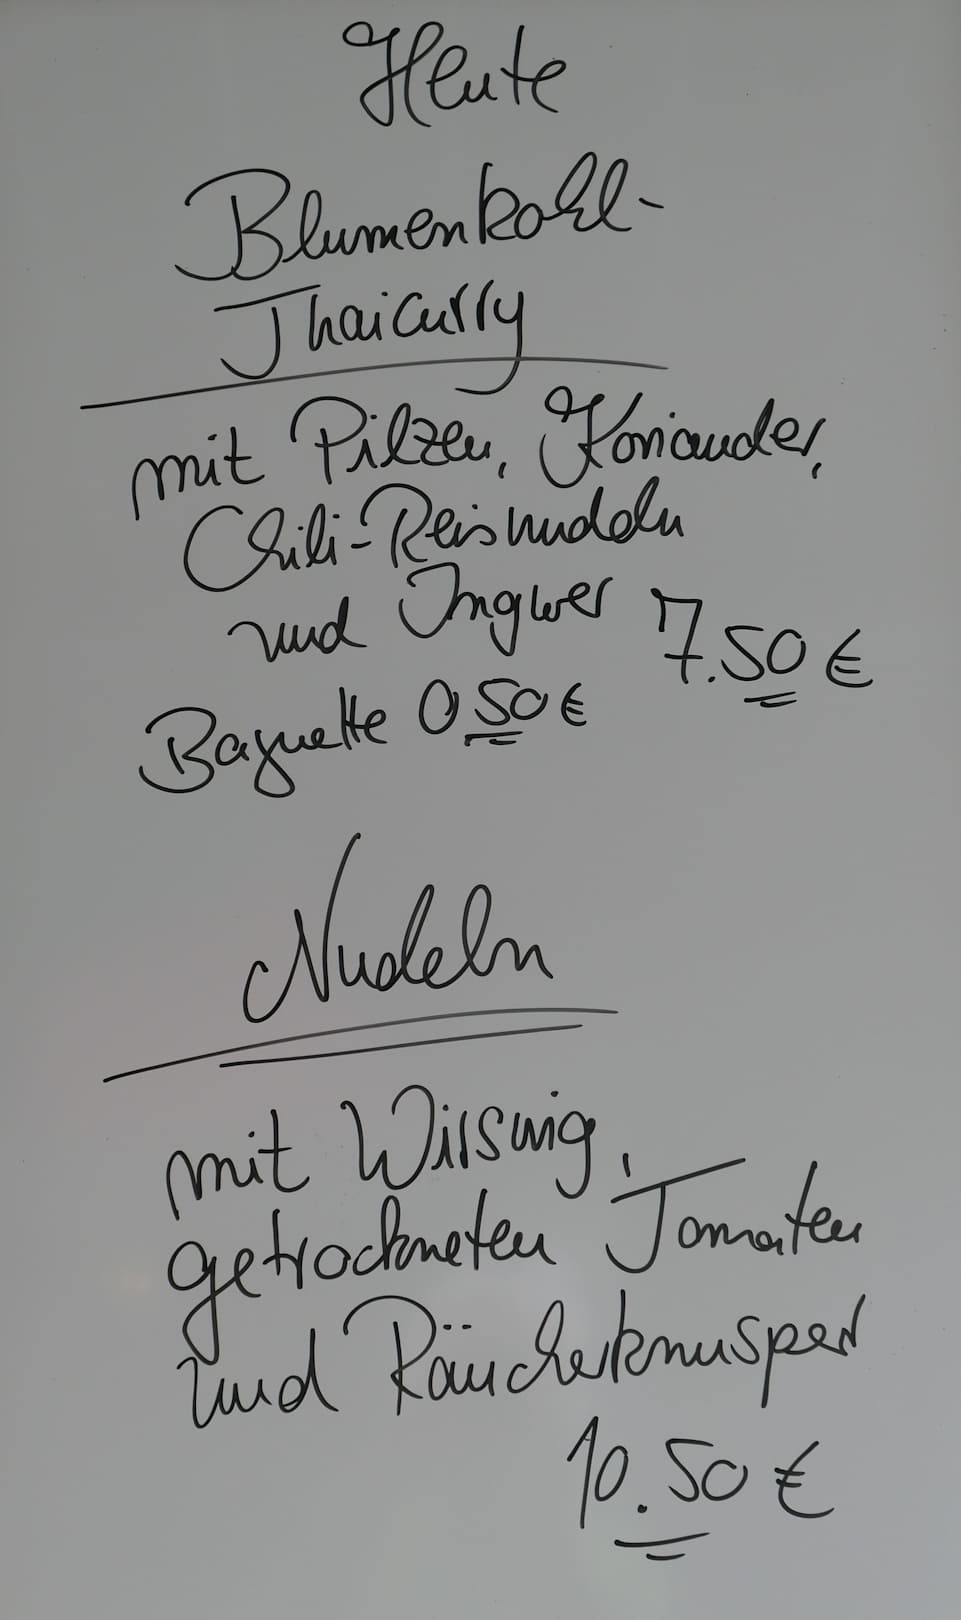 Heute
Blumenkohl-
Thaicurry
mit Pilzen, Koriander,
Chili-Reisnudeln
und Ingwer 7.50 €
Baguette 0,50 €
Nudeln
mit Wirsing,
getrockneten Tomaten
und Räucherknusper
10.50 €